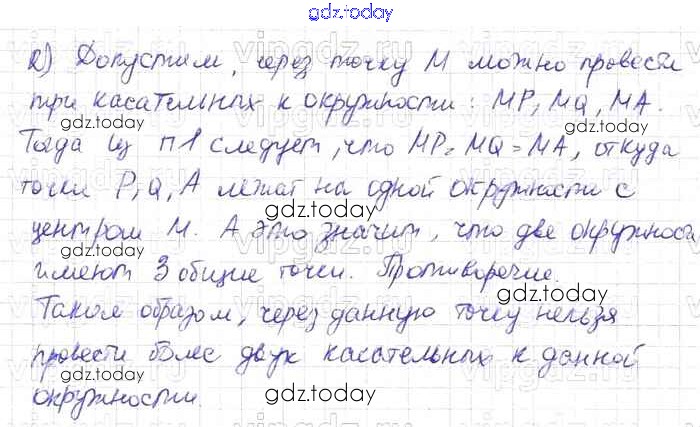 gdz.today
2) Допустим, через точку М можно провести
три касательных к окружности: MP, MQ, MA.
gdz.today
gdz.today
Тогда из п1 следует, что MP = MQ = MA, откуда
точки P, Q, A лежат на одной окружности с
gdz.today
центром М. А это значит, что две окружности
gdz.today
имеют 3 общие точки. Противоречие.
gdz.today
Таким образом, через данную точку нельзя
провести более двух касательных к данной
gdz.today
окружности.
gdz.today